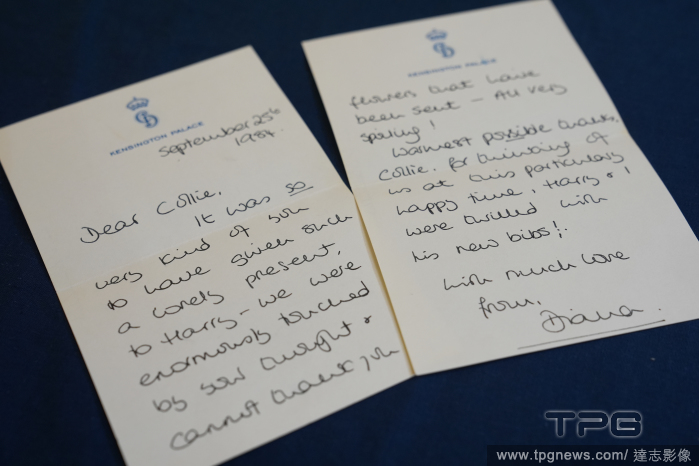 KENSINGTON PALACE
September 25th
1984.
Dear Collie,
It was so
very kind of you
to have given such
a lovely present,
to Harry - we were
enormously touched
by your thought &
cannot thank you
KENSINGTON PALACE
flowers that have
been sent - All very
spoiling!
Warmest possible thanks,
Collie, for thinking of
us at this particularly
happy time, Harry & I
were thrilled with
his new bibs!
with much love
from,
Diana.
TPG
www.tpgnews.com/ 達志影像